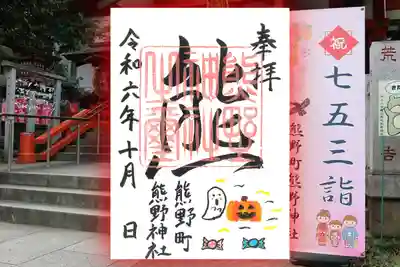 奉拝
熊
令和六年十月 日
熊野町
熊野神社
祝
七五三詣
熊野町熊野神社
荒
告